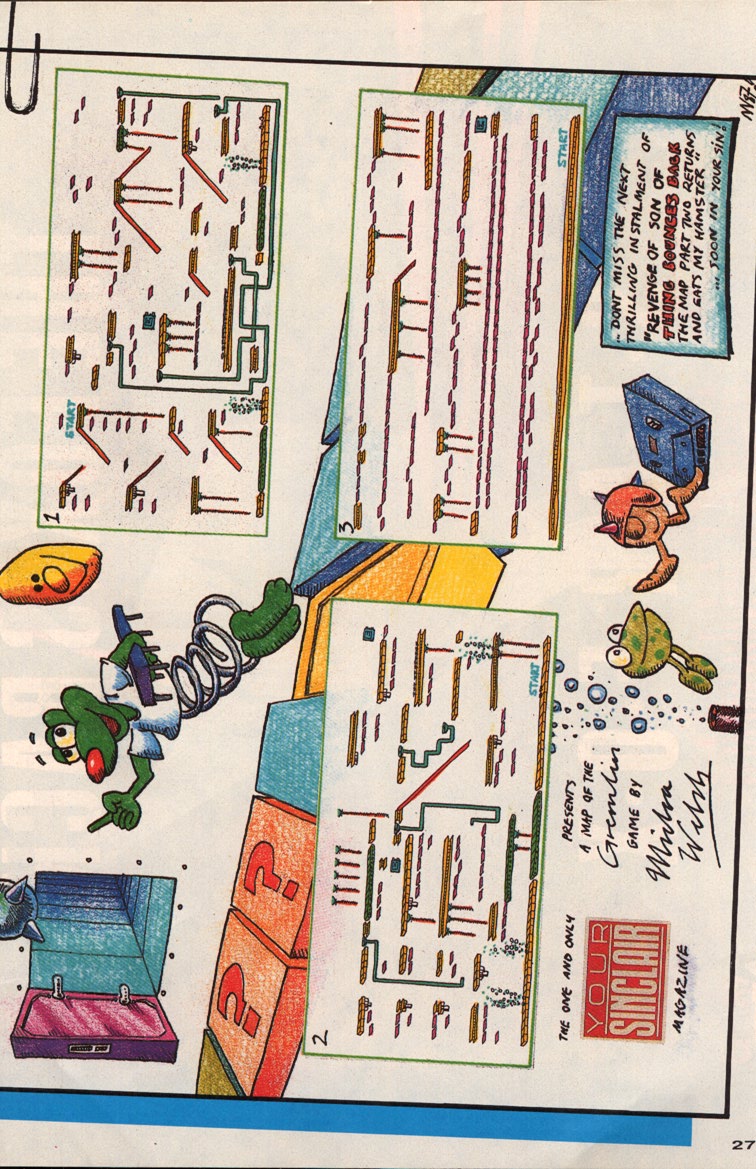 1
START
?
?
2
START
3
START
THE ONE AND ONLY
YOUR
SINCLAIR
MAGAZINE
PRESENTS
A MAP OF THE
Gremlin
GAME BY
Misha
Welsh
"DONT MISS THE NEXT
THRILLING INSTALMENT OF
"REVENGE OF SON OF
THING BOUNCES BACK
THE MAP PART TWO RETURNS
AND EATS MY HAMSTER"
... SOON IN 'YOUR SIN'!
27